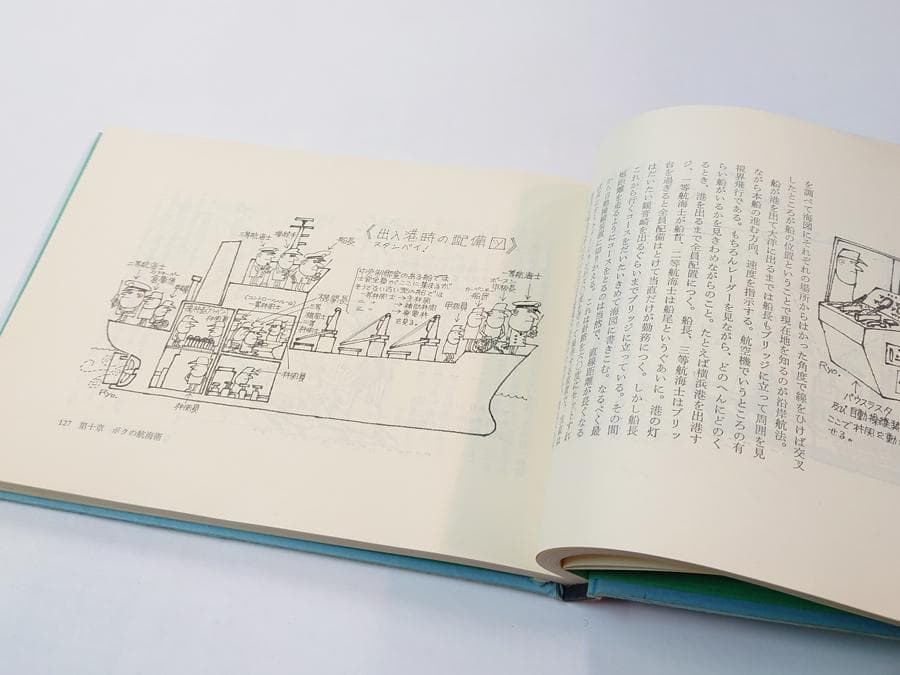 《出入港時の配備図》
スタンバイ!
船長
操舵手
三等航海士
二等航海士
甲板員
機関長
一等航海士
甲板長
船匠
甲板員
機関員
機関員
Ryo.
127 第十章 ボクの航海術
を調べて海図にそれぞれの場所からはかった角度で線をひけば交叉
したところが船の位置ということで現在地を知るのが沿岸航法。
船が港を出て大洋に出るまでは船長もブリッジに立って周囲を見
ながら本船の進む方向、速度を指示する。航空機でいうところの有
視界飛行である。もちろんレーダーを見ながら、どのへんにどのく
らい船がいるかを見きわめながらのこと。たとえば横浜港を出港す
るとき、港を出るまで全員配置につく。船長、三等航海士はブリッ
ジ、一等航海士が船首、二等航海士は船尾というぐあいに。港の灯
台を過ぎると全員配備はとけて当直だけが勤務につく。しかし船長
はだいたい観音崎を出るぐらいまでブリッジに立っている。その間
これから行くコースをだいたいきめて海図に書きこむ。なるべく最
短距離を走るようにコースをとるのは当然で、直線距離が長くなる
Ryo.
バウスラスタ
及び自動操縦装
ここで機関を動か
せる。